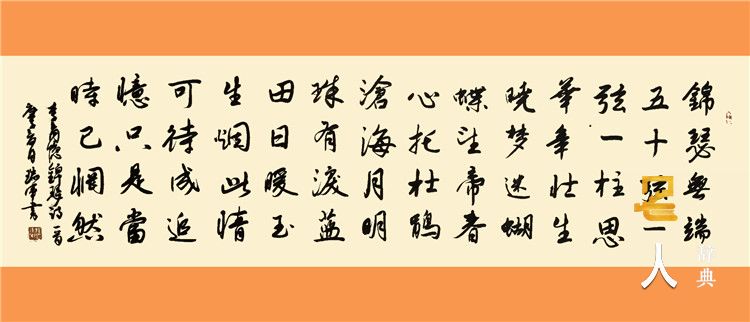 錦瑟無端
五十弦一
弦一柱思
華年壮生
曉梦迷蝴
蝶望帝春
心托杜鹃
滄海月明
珠有淚蓝
田日暖玉
生烟此情
可待成追
憶只是當
時已惘然
李商隐錦瑟詩一首
人
辞典